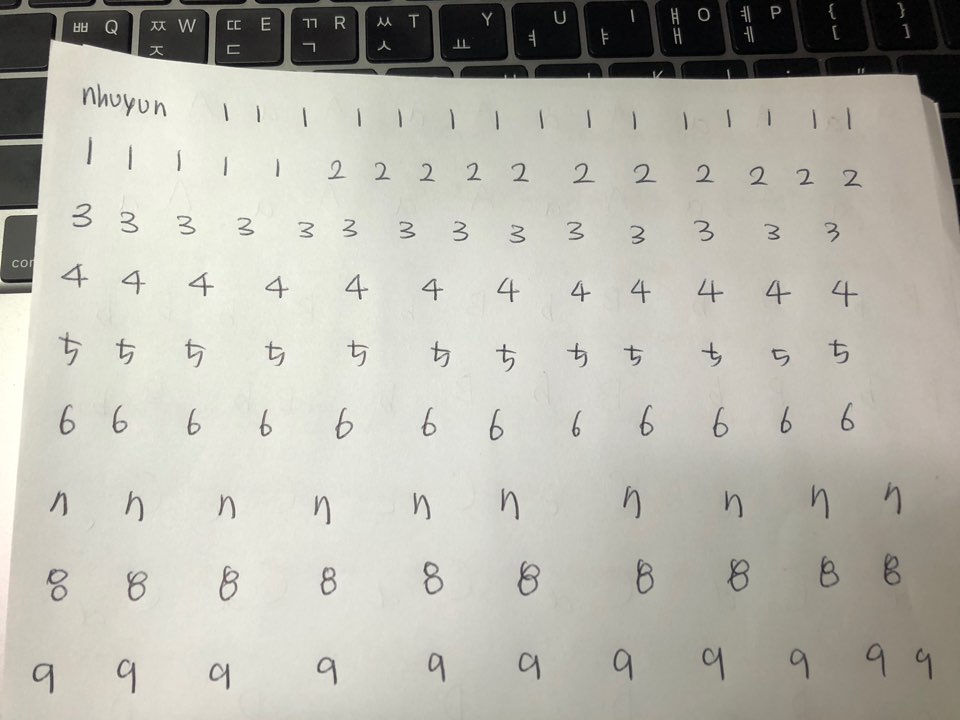 ㅃ Q ㅉ W ㄸ E ㄲ R ㅆ T Y U I ㅒ O ㅖ P { }
ㅈ ㄷ ㄱ ㅅ ㅛ ㅕ ㅑ ㅐ ㅔ [ ]
nhuyun 1 1 1 1 1 1 1 1 1 1 1 1 1 1 1
1 1 1 1 1 2 2 2 2 2 2 2 2 2 2 2
3 3 3 3 3 3 3 3 3 3 3 3 3 3
4 4 4 4 4 4 4 4 4 4 4 4
5 5 5 5 5 5 5 5 5 5 5 5
6 6 6 6 6 6 6 6 6 6 6 6
7 7 7 7 7 7 7 7 7 7
8 8 8 8 8 8 8 8 8 8
9 9 9 9 9 9 9 9 9 9 9